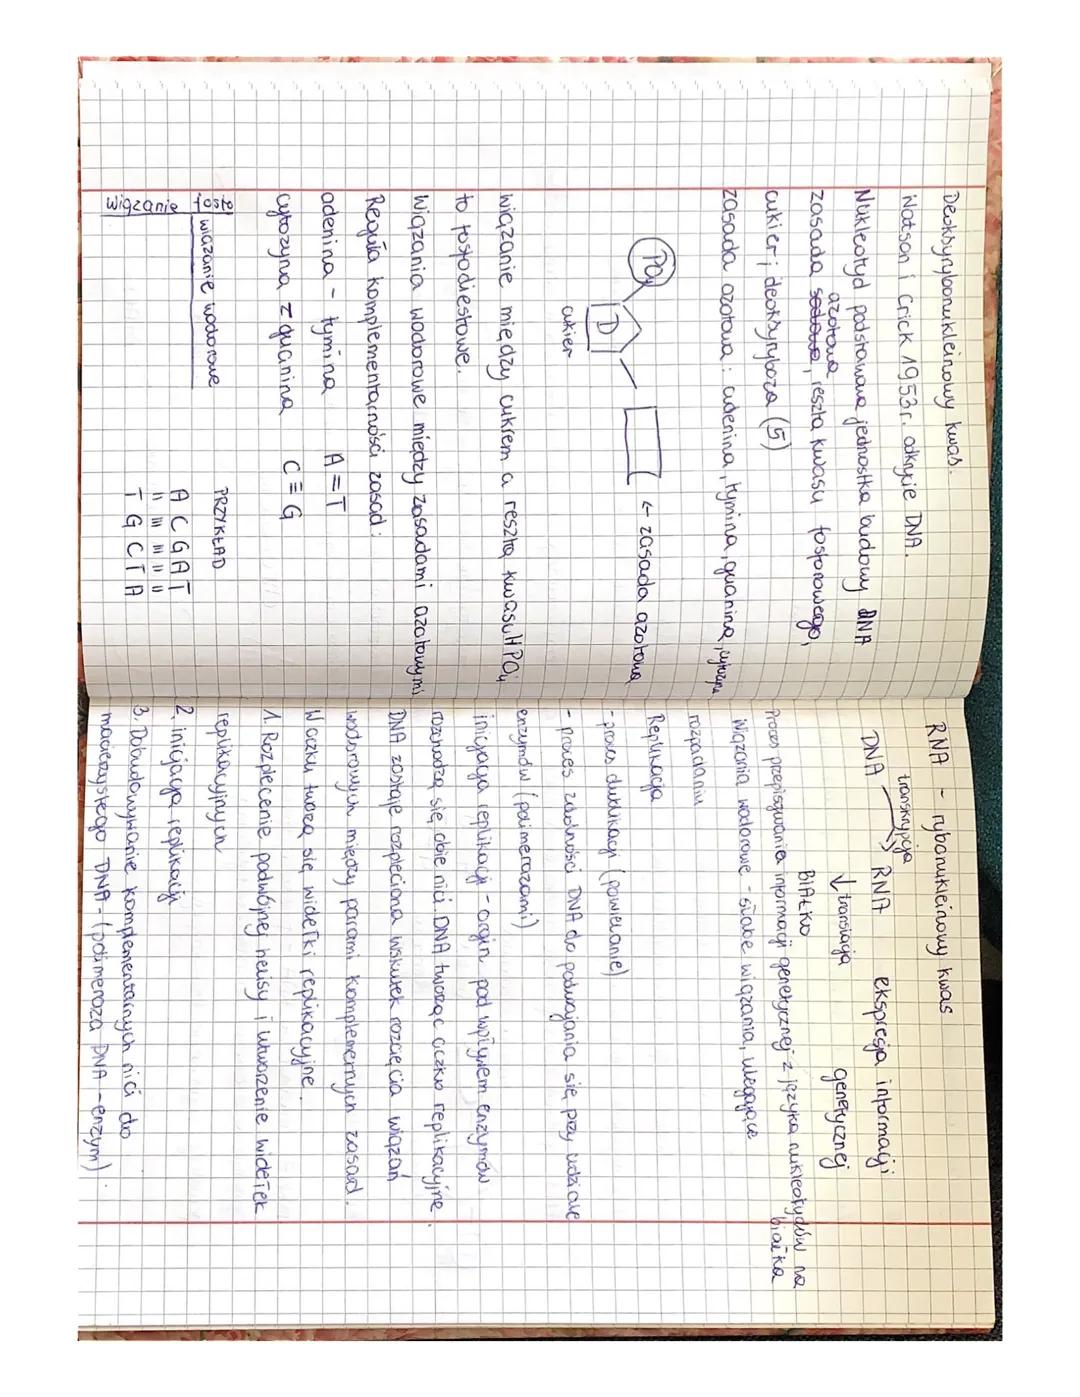 Deoksyrybonukleinowy kwas.
Watson i Crick 1953r. odkrycie DNA.
Nukleotyd podstawowa jednostka budowy DNA
azotowa
zasada, reszta kwasu fosforowego,
cukier; deoksyryboza (5)
zasada azotowa: adenina, tymina, guanina, cytozyna
PO4
D
cukier
← zasada azotowa
wiązanie między cukrem a resztą kwasu HPO4
to fosfodiestowe.
Wiązania wodorowe między zasadami azotowymi
Reguła komplementarności zasad:
adenina - tymina A=T
cytozyna z guanina C≡G
wiązanie wodorowe
fosfo
wiązanie
PRZYKŁAD
A C G A T
T G C T A
RNA - rybonukleinowy kwas
transkrypcja
DNA → RNA ekspresja informacji
↓ translacja genetycznej
BIAŁKO
Proces przepisywania informacji genetycznej z języka nukleotydów na
białka
Wiązania wodorowe - słabe wiązania, ulegające
rozpadaniu
Replikacja
- proces duklikacji (powielanie)
- proces zdolności DNA do podwajania się przy udziale
enzymów (polimerazami)
inicjacja replikacji - orgin. pod wpływem enzymów
rozchodzą się obie nici DNA tworząc oczko replikacyjne.
DNA zostaje rozpleciona wskutek rozcięcia wiązań
wodorowych między parami komplemernych zasad.
W oczku tworzą się widełki replikacyjne.
1. Rozplecenie podwójnej helisy i utworzenie widełek
replikacyjnych
2. inicjacja replikacji
3. Dobudowywanie komplementarnych nici do
macierzystego DNA - (polimeraza DNA - enzym).